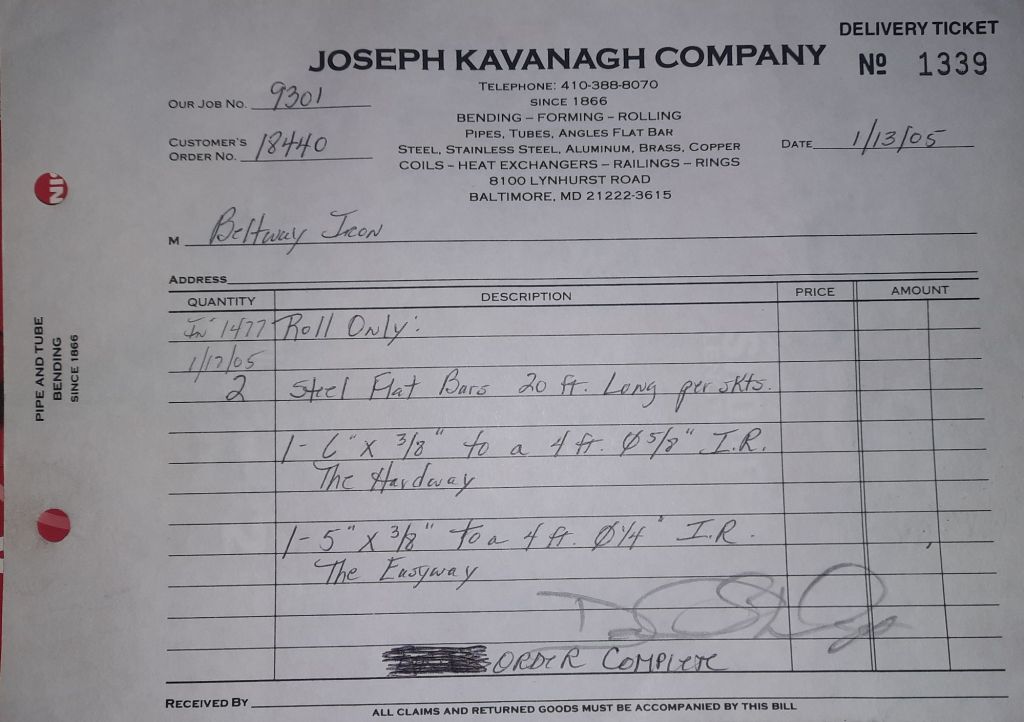 DELIVERY TICKET
JOSEPH KAVANAGH COMPANY
Nº 1339
TELEPHONE: 410-388-8070
SINCE 1866
BENDING – FORMING – ROLLING
PIPES, TUBES, ANGLES FLAT BAR
STEEL, STAINLESS STEEL, ALUMINUM, BRASS, COPPER
COILS – HEAT EXCHANGERS – RAILINGS – RINGS
8100 LYNHURST ROAD
BALTIMORE, MD 21222-3615
OUR JOB NO. 9301
CUSTOMER'S
ORDER NO. 18440
DATE 1/13/05
M Beltway Iron
ADDRESS
QUANTITY DESCRIPTION PRICE AMOUNT
In# 1477 Roll Only:
1/17/05
2 Steel Flat Bars 20 ft. Long per skts.
1- 6" x 3/8" to a 4 ft. Ø 5/8" I.R.
The Hardway
1- 5" x 3/8" to a 4 ft. Ø 1/4" I.R.
The Easyway
ORDER COMPLETE
RECEIVED BY
ALL CLAIMS AND RETURNED GOODS MUST BE ACCOMPANIED BY THIS BILL
PIPE AND TUBE
BENDING
SINCE 1866